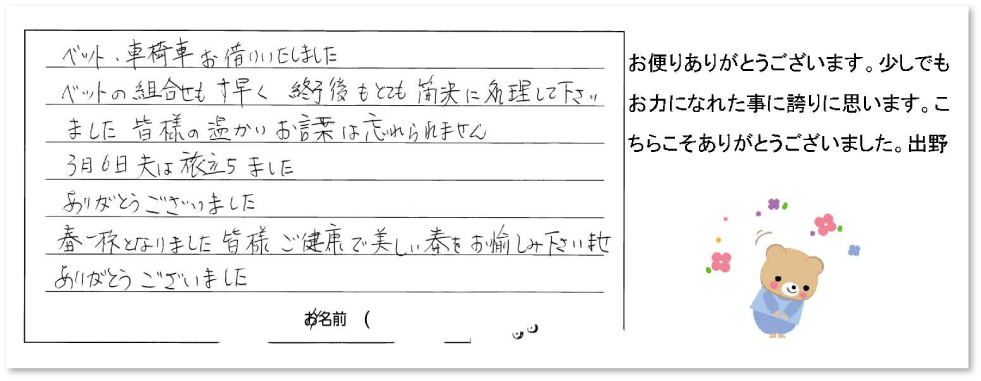 ベット、車椅車お借りいたしました
ベットの組合せもす早く 終了後もとても簡決に処理して下さい
ました 皆様の温かいお言葉は忘れられません
3月6日夫は旅立ちました
ありがとうございました
春一杯となりました皆様ご健康で美しい春をお愉しみ下さいませ
ありがとうございました
お名前 (
お便りありがとうございます。少しでも
お力になれた事に誇りに思います。こ
ちらこそありがとうございました。出野